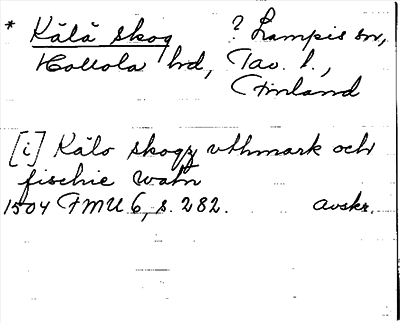 * Kälä skog ? Lampis sn,
Hollola hd, Tav. l.,
Finland
[i] Kälo skogz vthmark och
fischie watn
1504 FMU 6, s. 282. avskr.